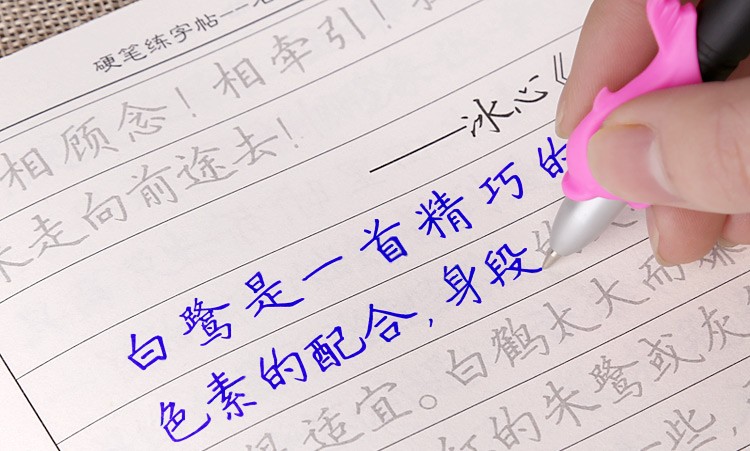 硬笔练字帖--名
相顾念！相牵引！
走向前途去！
——冰心《
白鹭是一首精巧的
色素的配合，身段
适宜。白鹤太大而嫌
的朱鹭或灰
一些，